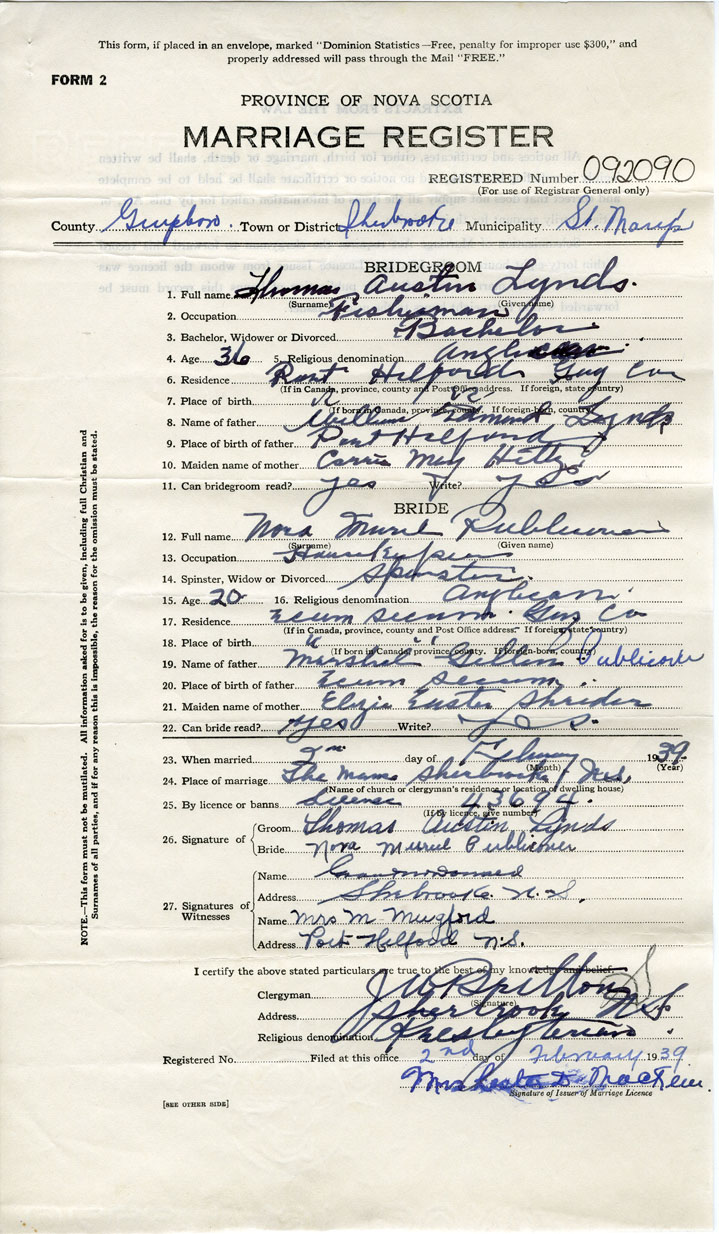 This form, if placed in an envelope, marked "Dominion Statistics—Free, penalty for improper use $300," and
properly addressed will pass through the Mail "FREE."
FORM 2
PROVINCE OF NOVA SCOTIA
MARRIAGE REGISTER
REGISTERED Number 092090
(For use of Registrar General only)
County Guysboro. Town or District Sherbrooke Municipality St. Mary's
BRIDEGROOM
1. Full name Thomas Austin Lynds.
(Surname) (Given name)
2. Occupation Fisherman
3. Bachelor, Widower or Divorced Bachelor
4. Age 36 5. Religious denomination Anglican
6. Residence Port Hilford Guy Co
(If in Canada, province, county and Post Office address. If foreign, state country)
7. Place of birth
(If born in Canada, province, county. If foreign-born, country)
8. Name of father William Edmond Lynds
9. Place of birth of father Port Hilford
10. Maiden name of mother Carrie May
11. Can bridegroom read? yes Write? yes
BRIDE
12. Full name Nora Muriel Publicover
(Surname) (Given name)
13. Occupation Housekeeper
14. Spinster, Widow or Divorced Spinster.
15. Age 20 16. Religious denomination Anglican.
17. Residence Ecum Secum. Guy Co
(If in Canada, province, county and Post Office address. If foreign, state country)
18. Place of birth " " "
(If born in Canada, province, county. If foreign-born, country)
19. Name of father Publicover
20. Place of birth of father Ecum Secum
21. Maiden name of mother
22. Can bride read? Yes Write? Yes.
23. When married 2nd day of February 1939
(Month) (Year)
24. Place of marriage The Manse Sherbrooke, N.S.
(Name of church or clergyman's residence, or location of dwelling house)
25. By licence or banns License 43694.
(If by licence, give number)
26. Signature of
Groom Thomas Austin Lynds
Bride Nora Muriel Publicover
27. Signatures of Witnesses
Name
Address Sherbrooke N.S.
Name Mrs M Mugford
Address Port Hilford N.S.
I certify the above stated particulars are true to the best of my knowledge and belief.
Clergyman J W
(Signature)
Address Sherbrooke N.S.
Religious denomination Presbyterian.
Registered No. Filed at this office 2nd day of February 1939
Mrs
Signature of Issuer of Marriage Licence
[SEE OTHER SIDE]
NOTE.—This form must not be mutilated. All information asked for is to be given, including full Christian and
Surnames of all parties, and if for any reason this is impossible, the reason for the omission must be stated.